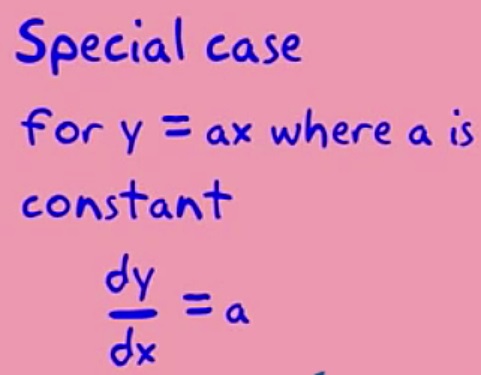 Special case
for y = ax where a is
constant
dy/dx = a